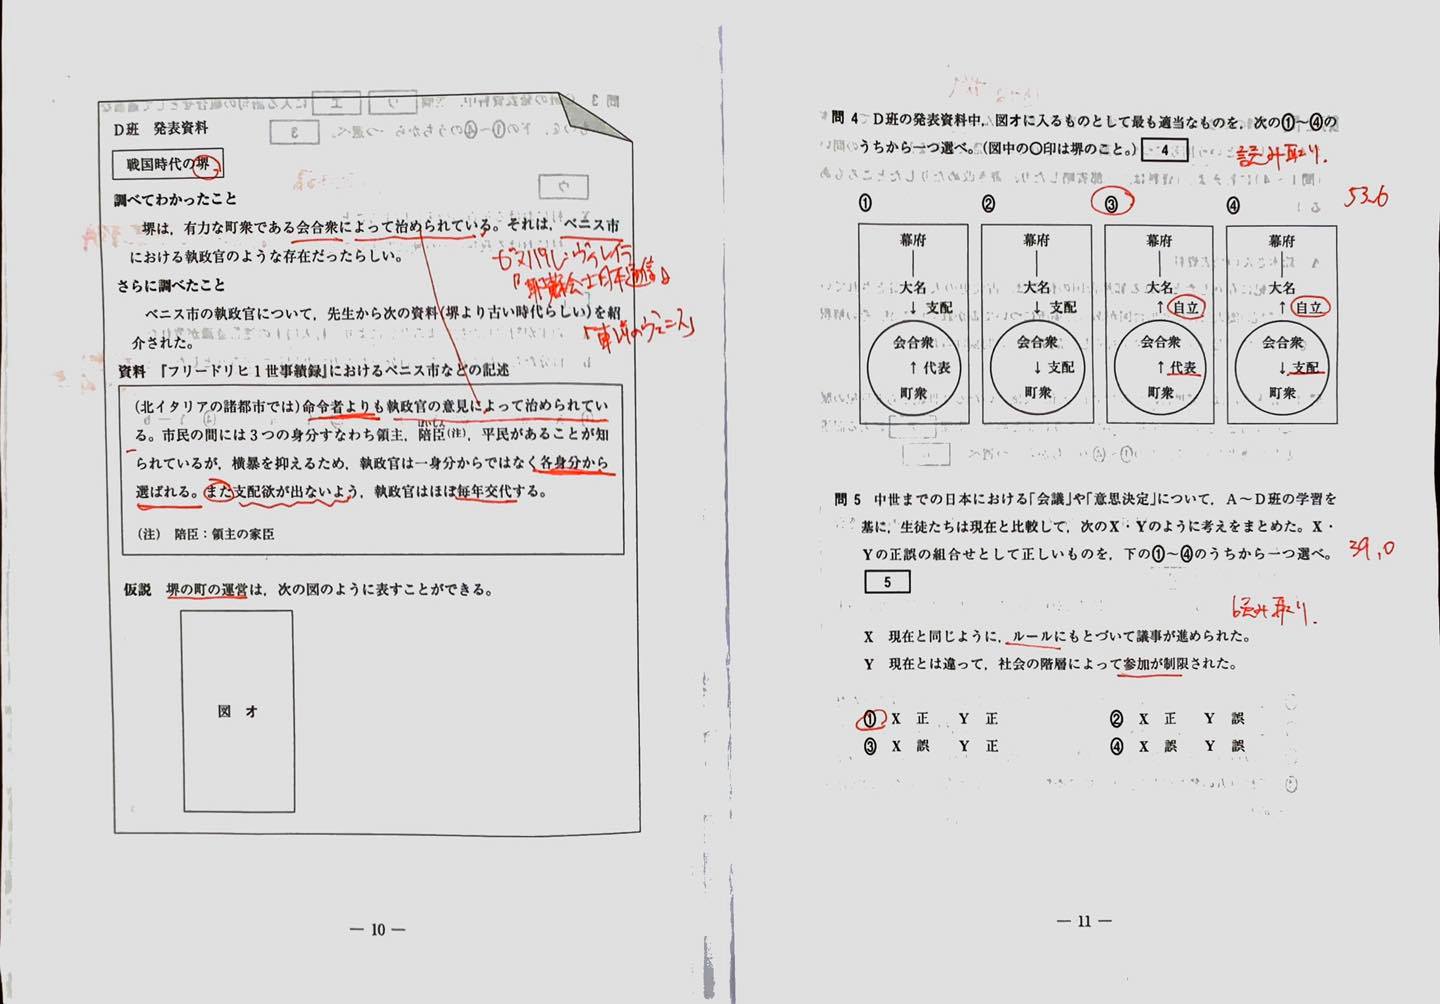 D班　発表資料
戦国時代の堺
調べてわかったこと
堺は，有力な町衆である会合衆によって治められている。それは，ベニス市
における執政官のような存在だったらしい。
ガスパル・ヴィレラ
『耶蘇会士日本通信』
さらに調べたこと
ベニス市の執政官について，先生から次の資料(堺より古い時代らしい)を紹
介された。
資料　『フリードリヒ1世事績録』におけるベニス市などの記述
(北イタリアの諸都市では)命令者よりも執政官の意見によって治められてい
る。市民の間には3つの身分すなわち領主，陪臣(注)，平民があることが知
ばいしん
られているが，横暴を抑えるため，執政官は一身分からではなく各身分から
選ばれる。また支配欲が出ないよう，執政官はほぼ毎年交代する。
(注)　陪臣：領主の家臣
仮説　堺の町の運営は，次の図のように表すことができる。
図　オ
— 10 —
問 4　D班の発表資料中，図オに入るものとして最も適当なものを，次の①〜④の
うちから一つ選べ。(図中の○印は堺のこと。)　4
読み取り.
53.6
①　②　③　④
幕府　幕府　幕府　幕府
大名　大名　大名　大名
↓ 支配　↓ 支配　↑ 自立　↑ 自立
会合衆　会合衆　会合衆　会合衆
↑ 代表　↓ 支配　↑ 代表　↓ 支配
町衆　町衆　町衆　町衆
問 5　中世までの日本における「会議」や「意思決定」について，A〜D班の学習を
基に，生徒たちは現在と比較して，次のX・Yのように考えをまとめた。X・
Yの正誤の組合せとして正しいものを，下の①〜④のうちから一つ選べ。
39.0
5
読み取り.
X　現在と同じように，ルールにもとづいて議事が進められた。
Y　現在とは違って，社会の階層によって参加が制限された。
①　X　正　Y　正　②　X　正　Y　誤
③　X　誤　Y　正　④　X　誤　Y　誤
— 11 —